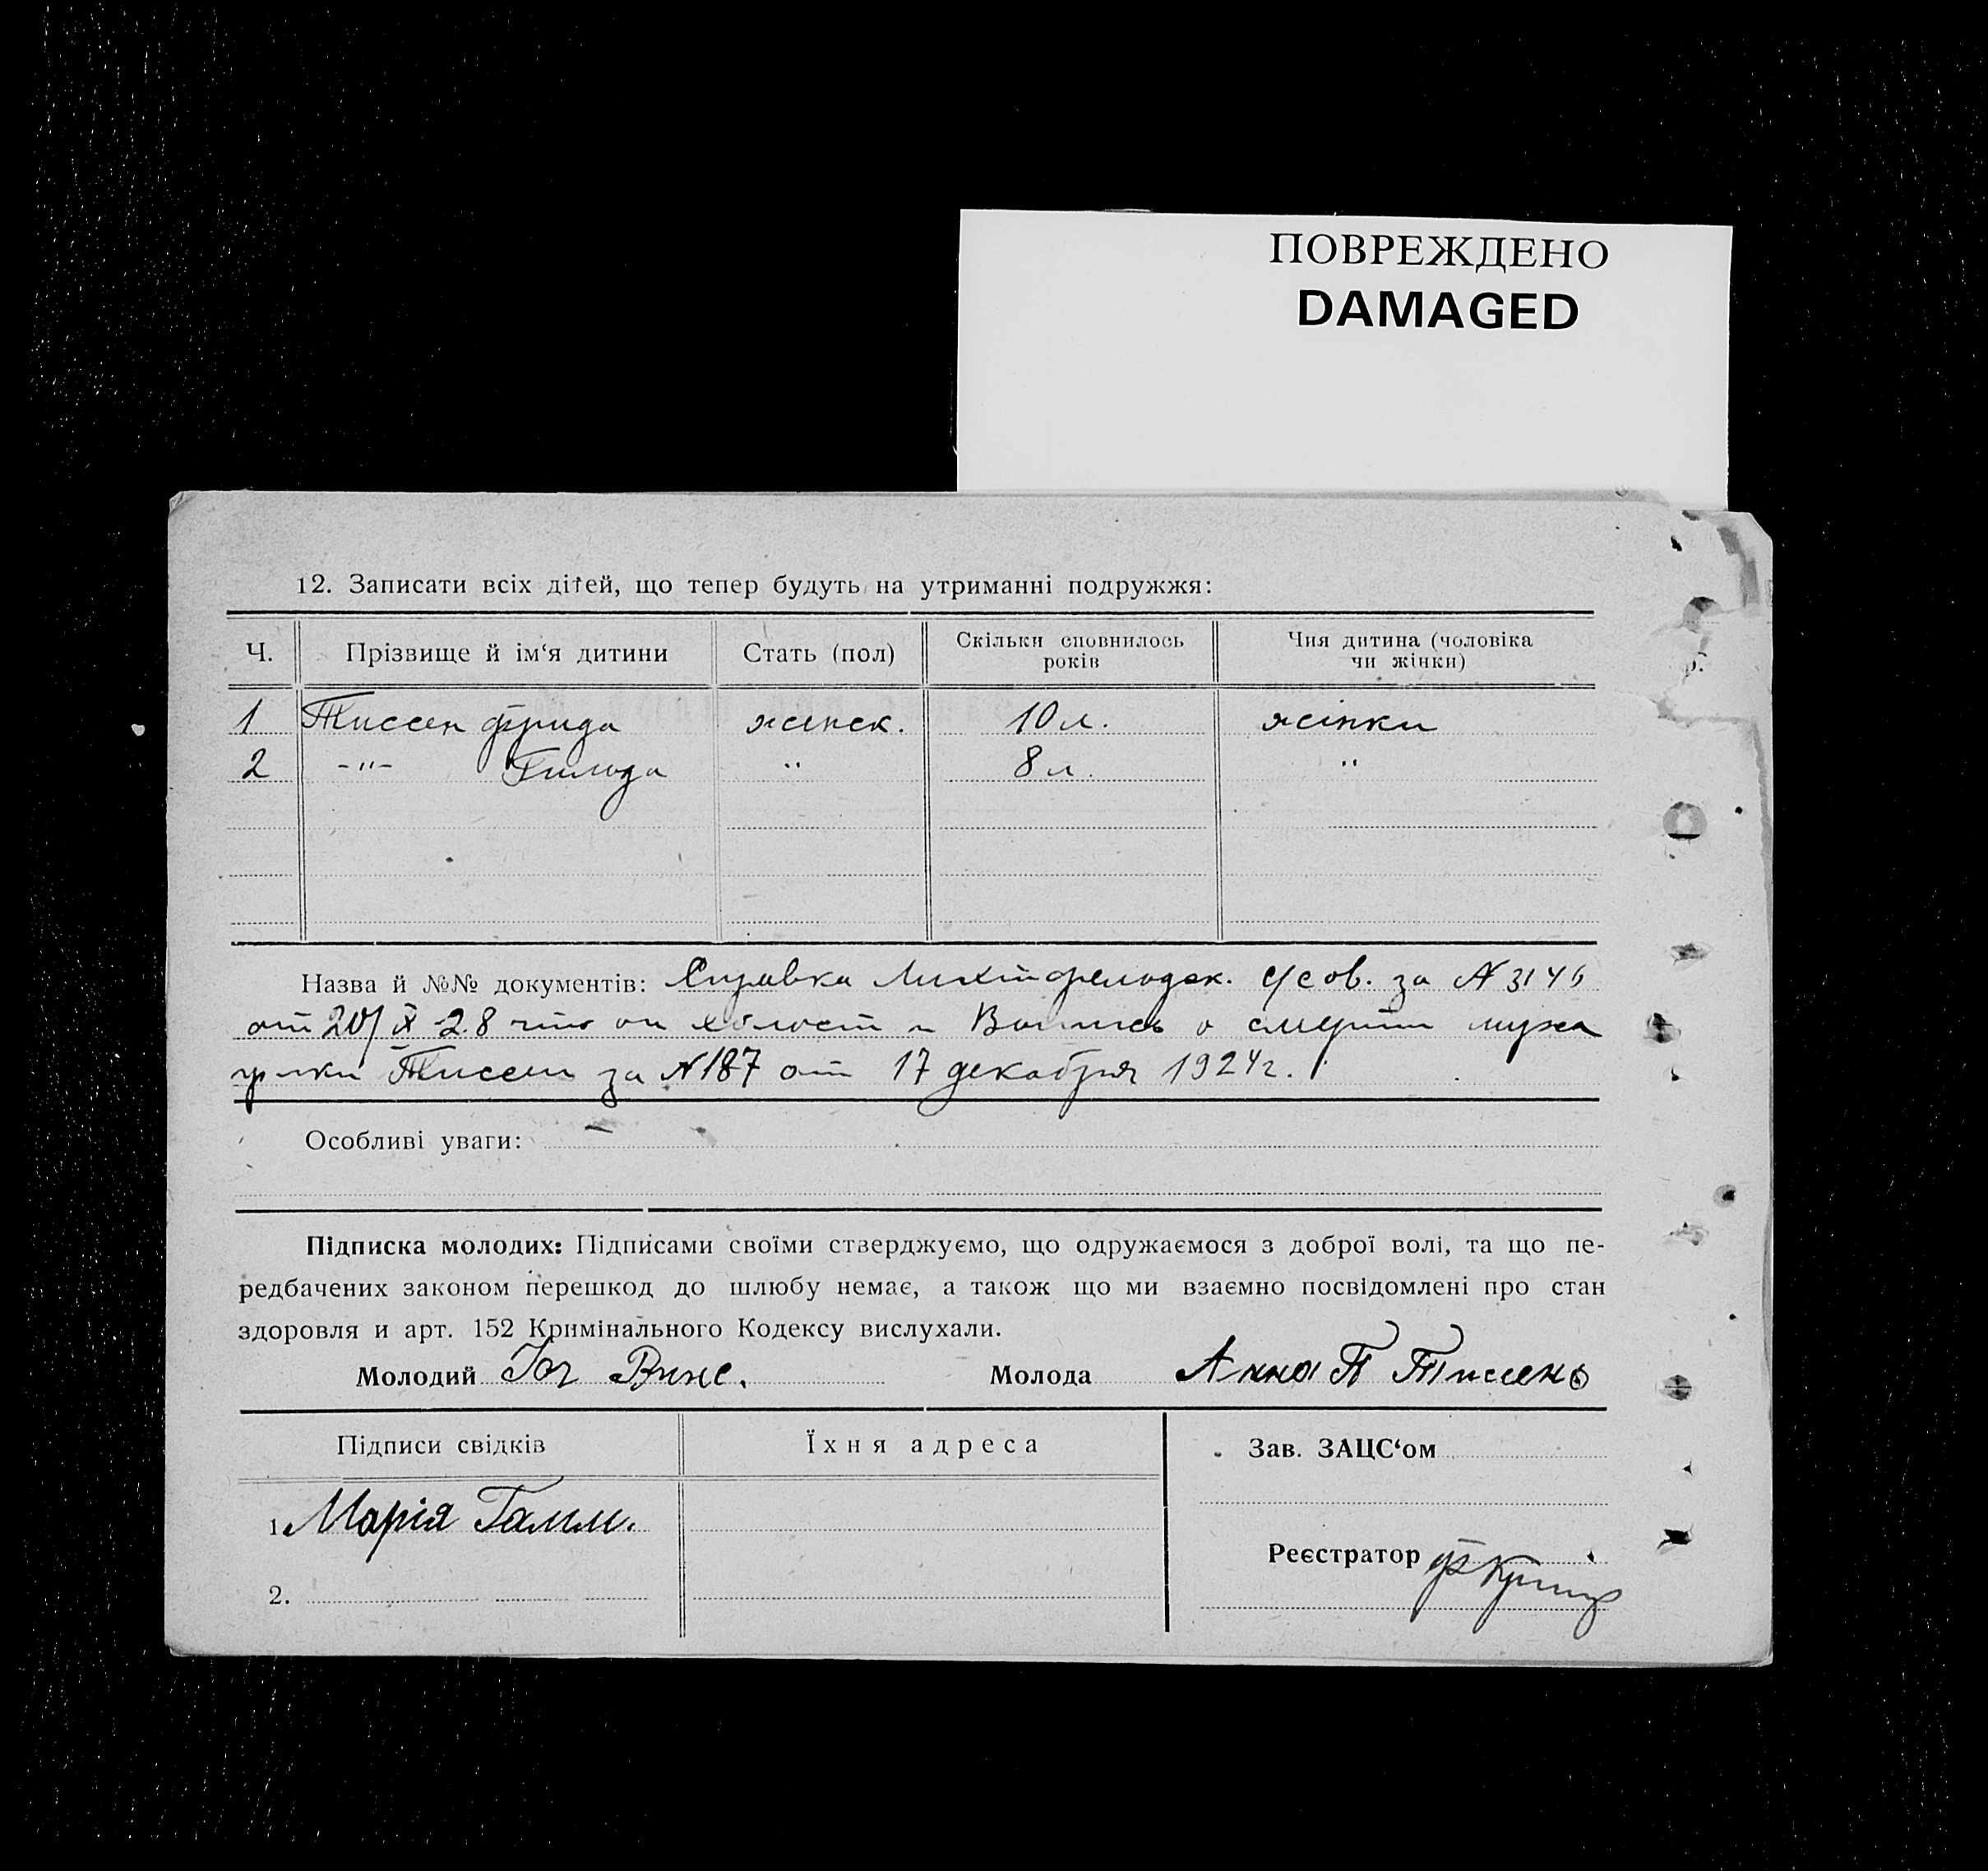 ПОВРЕЖДЕНО
DAMAGED
12. Записати всіх дітей, що тепер будуть на утриманні подружжя:
Ч. Прізвище й ім‘я дитини Стать (пол) Скільки сповнилось років Чия дитина (чоловіка чи жінки)
1 Тиссен Фрида женск. 10 л. жінки
2 -"- " 8 л. "
Назва й №№ документів: Справка Лихтфельдск. с/сов. за N
от 20/X 28 что он холост и Выпись о смерти мужа
Тиссен за N 187 от 17 декабря 1924 г.
Особливі уваги: –
Підписка молодих: Підписами своїми стверджуємо, що одружаємося з доброї волі, та що пе-
редбачених законом перешкод до шлюбу немає, а також що ми взаємно посвідомлені про стан
здоровля и арт. 152 Кримінального Кодексу вислухали.
Молодий Винс. Молода Анна П Тиссен
Підписи свідків Їхня адреса Зав. ЗАЦС‘ом
1. Марія Гамм.
Реєстратор
2.